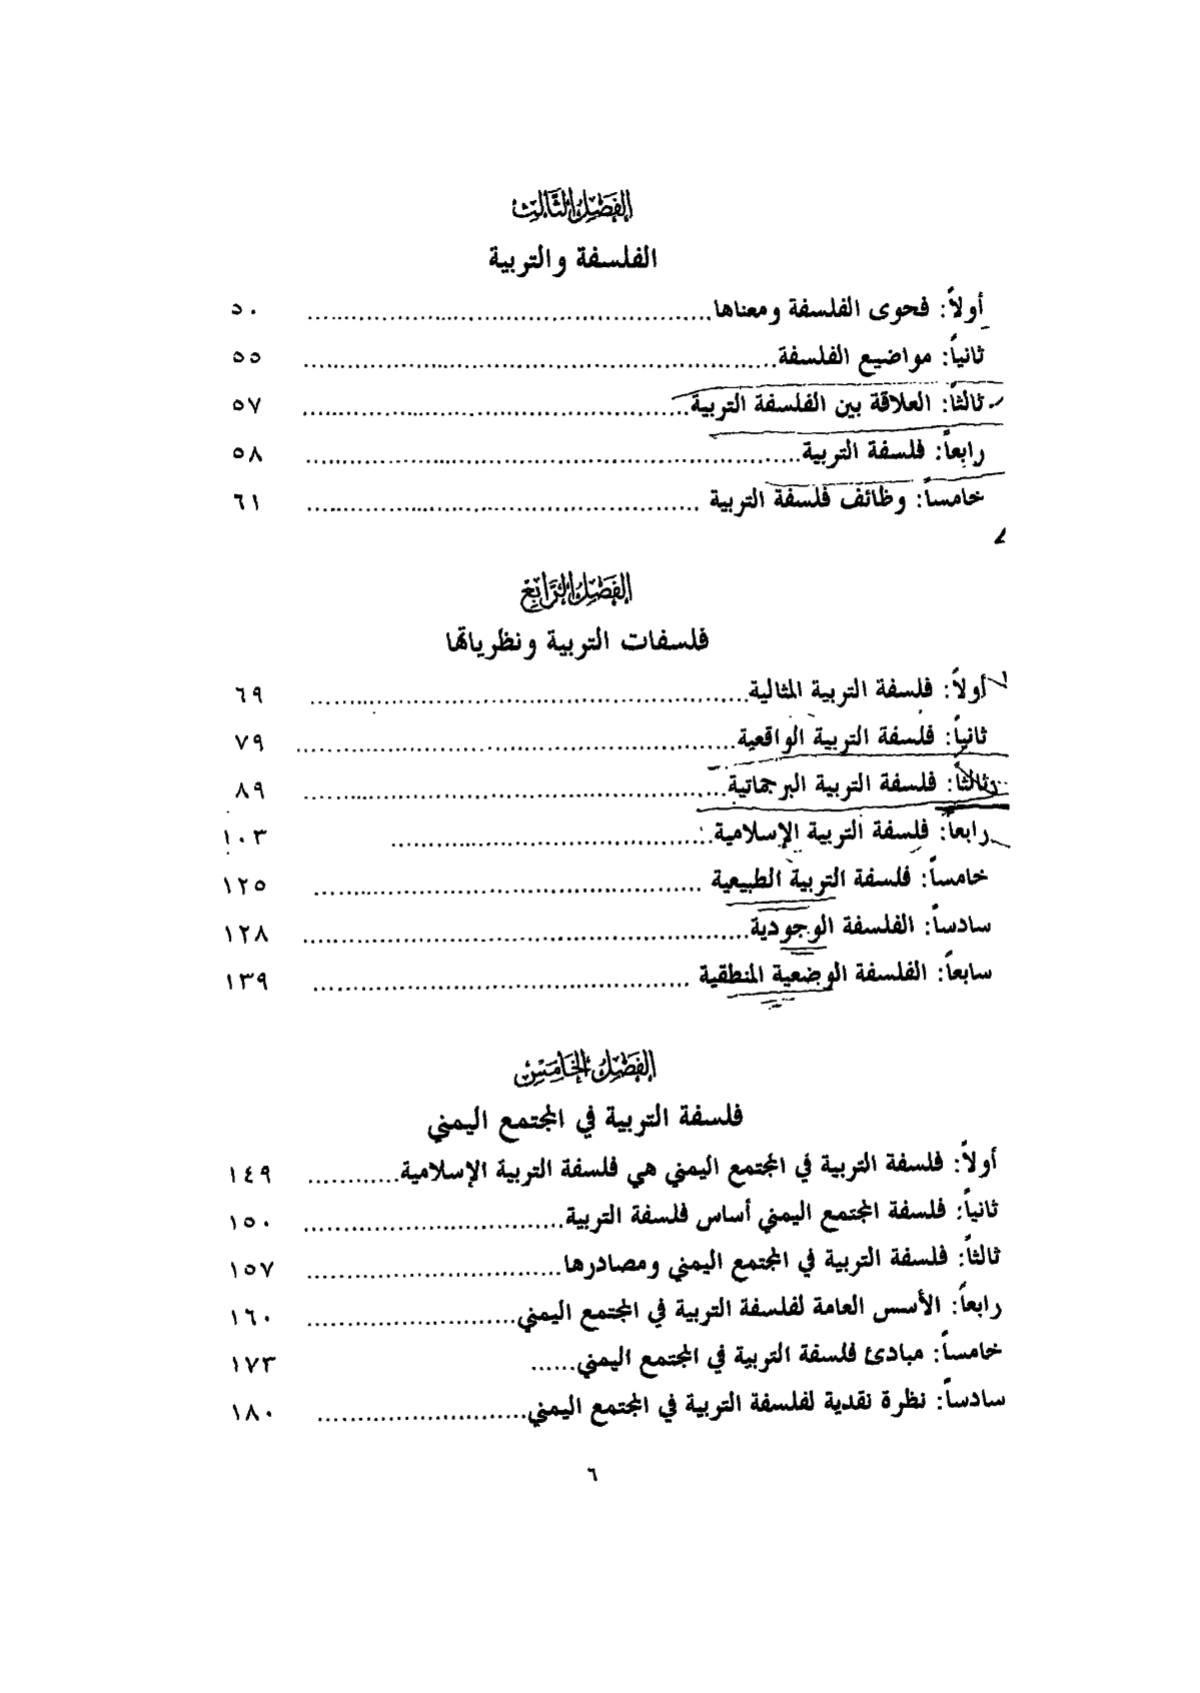 الفصل الثالث
الفلسفة والتربية
أولاً: فحوى الفلسفة ومعناها ................ ٥٠
ثانياً: مواضيع الفلسفة ................ ٥٥
ثالثاً: العلاقة بين الفلسفة التربية ................ ٥٧
رابعاً: فلسفة التربية ................ ٥٨
خامساً: وظائف فلسفة التربية ................ ٦١
الفصل الرابع
فلسفات التربية ونظرياتها
أولاً: فلسفة التربية المثالية ................ ٦٩
ثانياً: فلسفة التربية الواقعية ................ ٧٩
ثالثاً: فلسفة التربية البرجماتية ................ ٨٩
رابعاً: فلسفة التربية الإسلامية ................ ١٠٣
خامساً: فلسفة التربية الطبيعية ................ ١٢٥
سادساً: الفلسفة الوجودية ................ ١٢٨
سابعاً: الفلسفة الوضعية المنطقية ................ ١٣٩
الفصل الخامس
فلسفة التربية في المجتمع اليمني
أولاً: فلسفة التربية في المجتمع اليمني هي فلسفة التربية الإسلامية ............ ١٤٩
ثانياً: فلسفة المجتمع اليمني أساس فلسفة التربية ................ ١٥٠
ثالثاً: فلسفة التربية في المجتمع اليمني ومصادرها ................ ١٥٧
رابعاً: الأسس العامة لفلسفة التربية في المجتمع اليمني ................ ١٦٠
خامساً: مبادئ فلسفة التربية في المجتمع اليمني ...... ١٧٣
سادساً: نظرة نقدية لفلسفة التربية في المجتمع اليمني ................ ١٨٠
٦